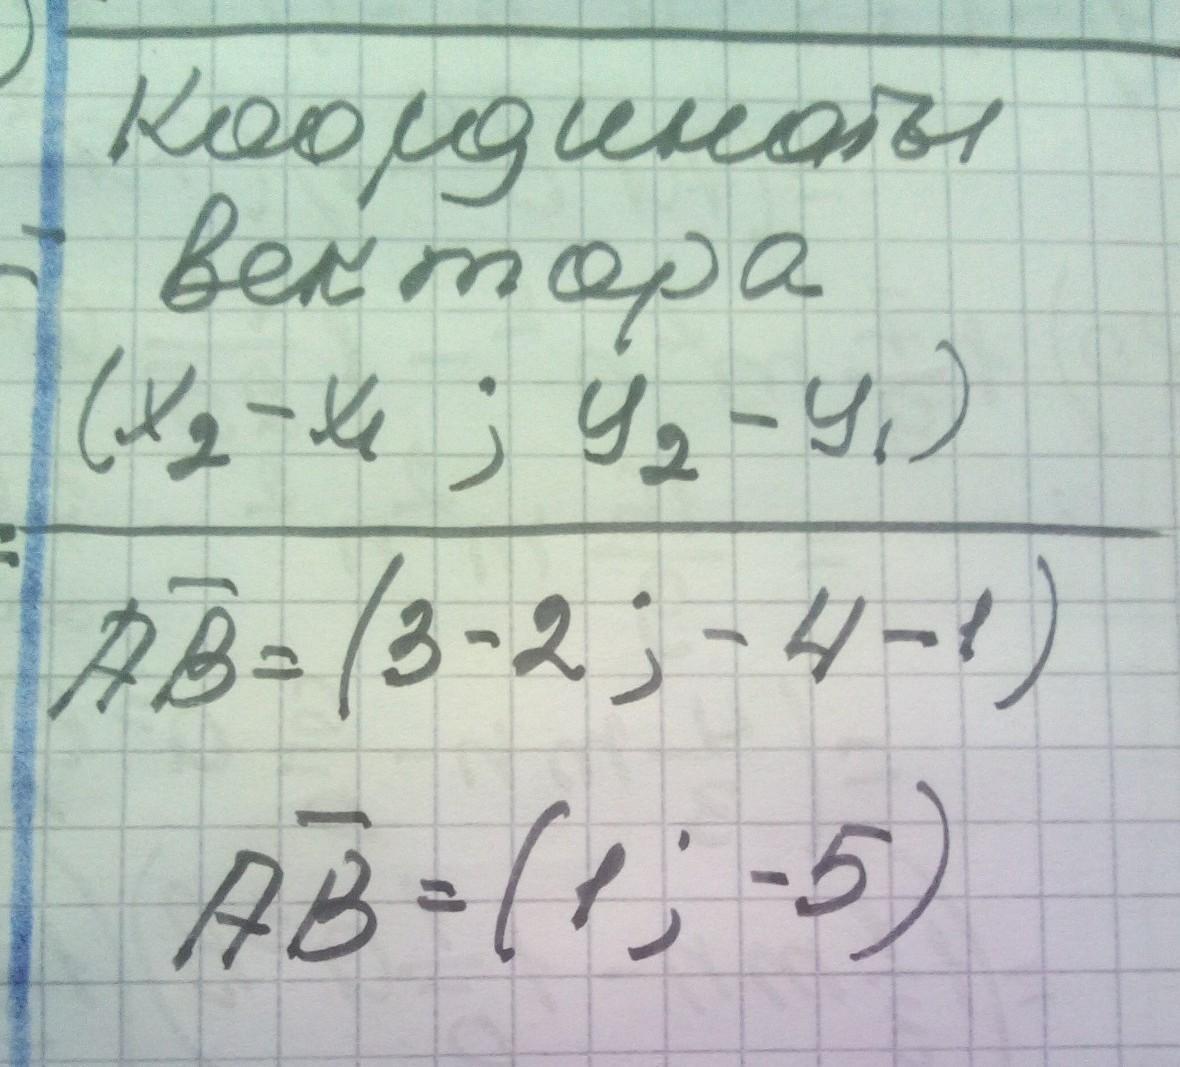 Координаты
вектора
(x₂ - x₁ ; y₂ - y₁)
AB̅ = (3 - 2 ; - 4 - 1)
AB̅ = (1 ; -5)